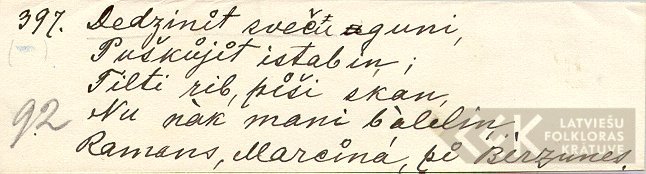 397. Dedzinit sveču uguni,
Puškůjit istabin̦;
Tilti rib, pīši skan,
92 Nu nàk mani bàleliņ,
Ramans, Marcīnā, pī Bērzunes.
LATVIEŠU
FOLKLORAS
KRĀTUVE